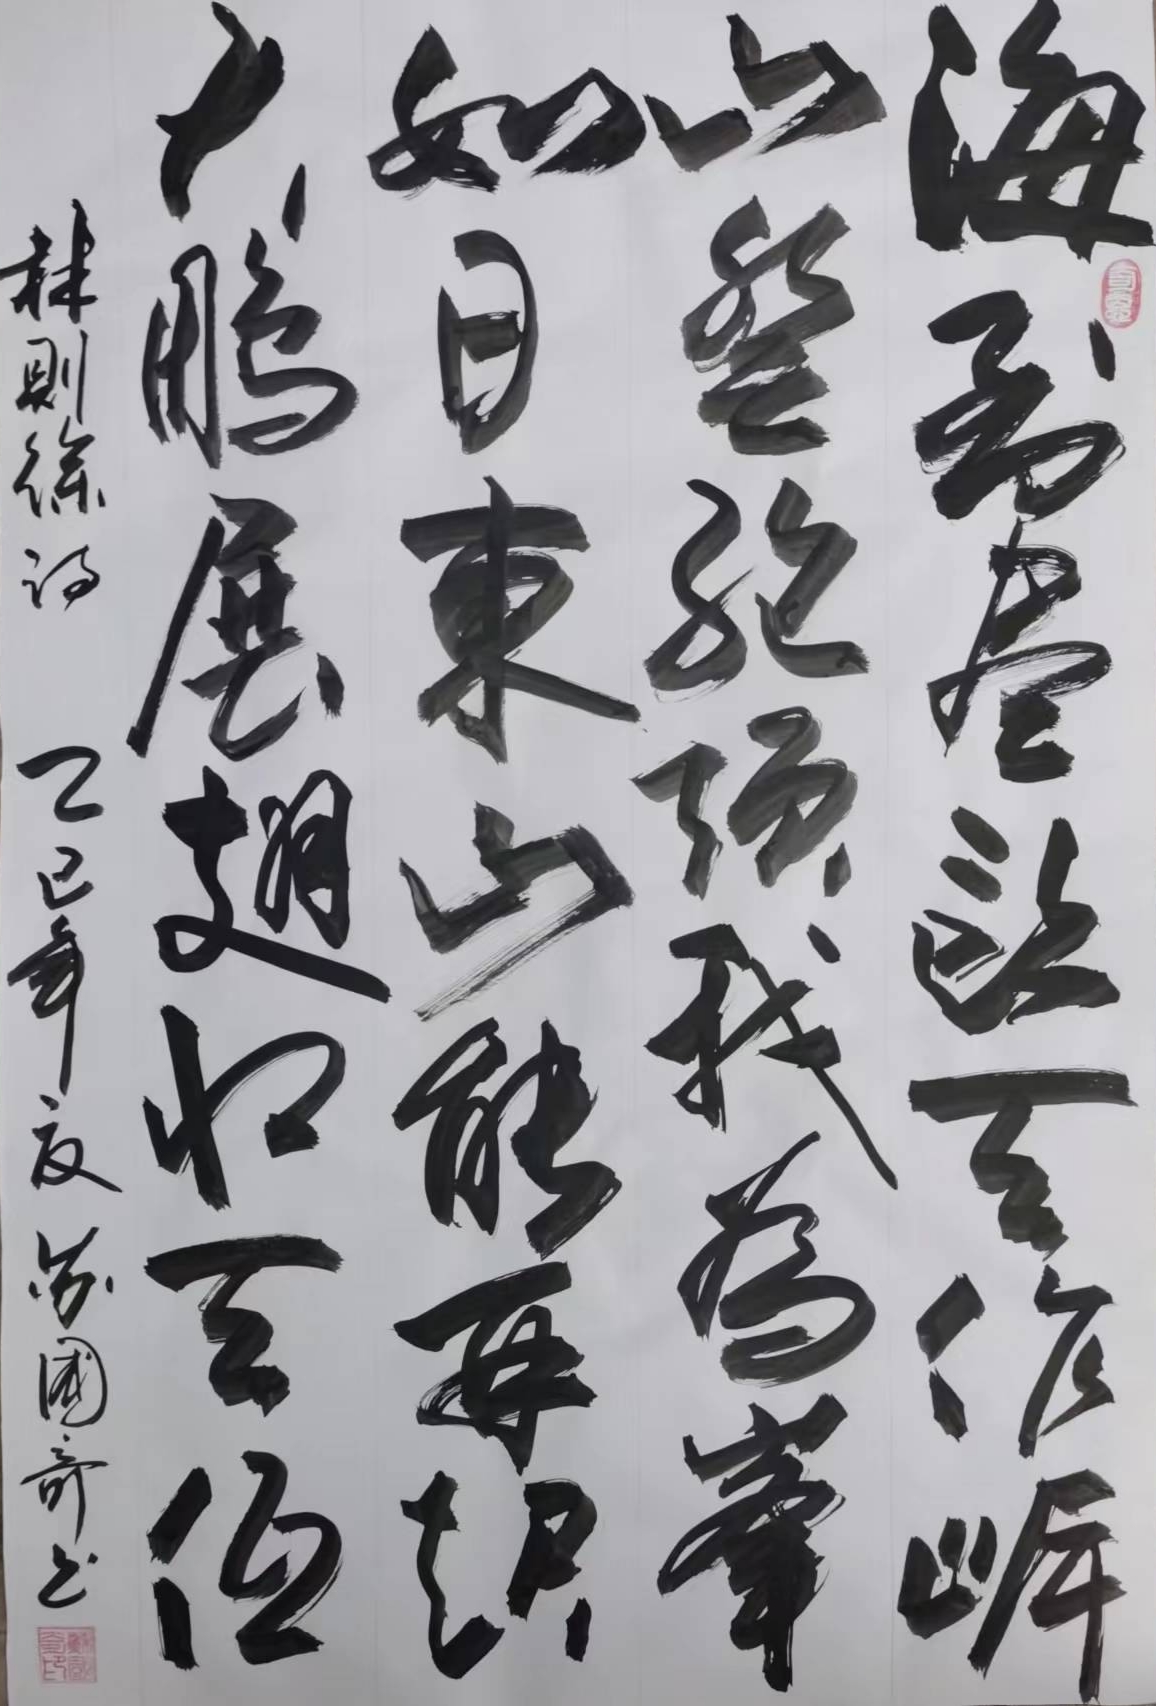 海到尽頭天作岸
山登絶頂我為峯
如日東山能再起
大鵬展翅恨天低
林則徐詩 乙巳年夏 苏國奇书